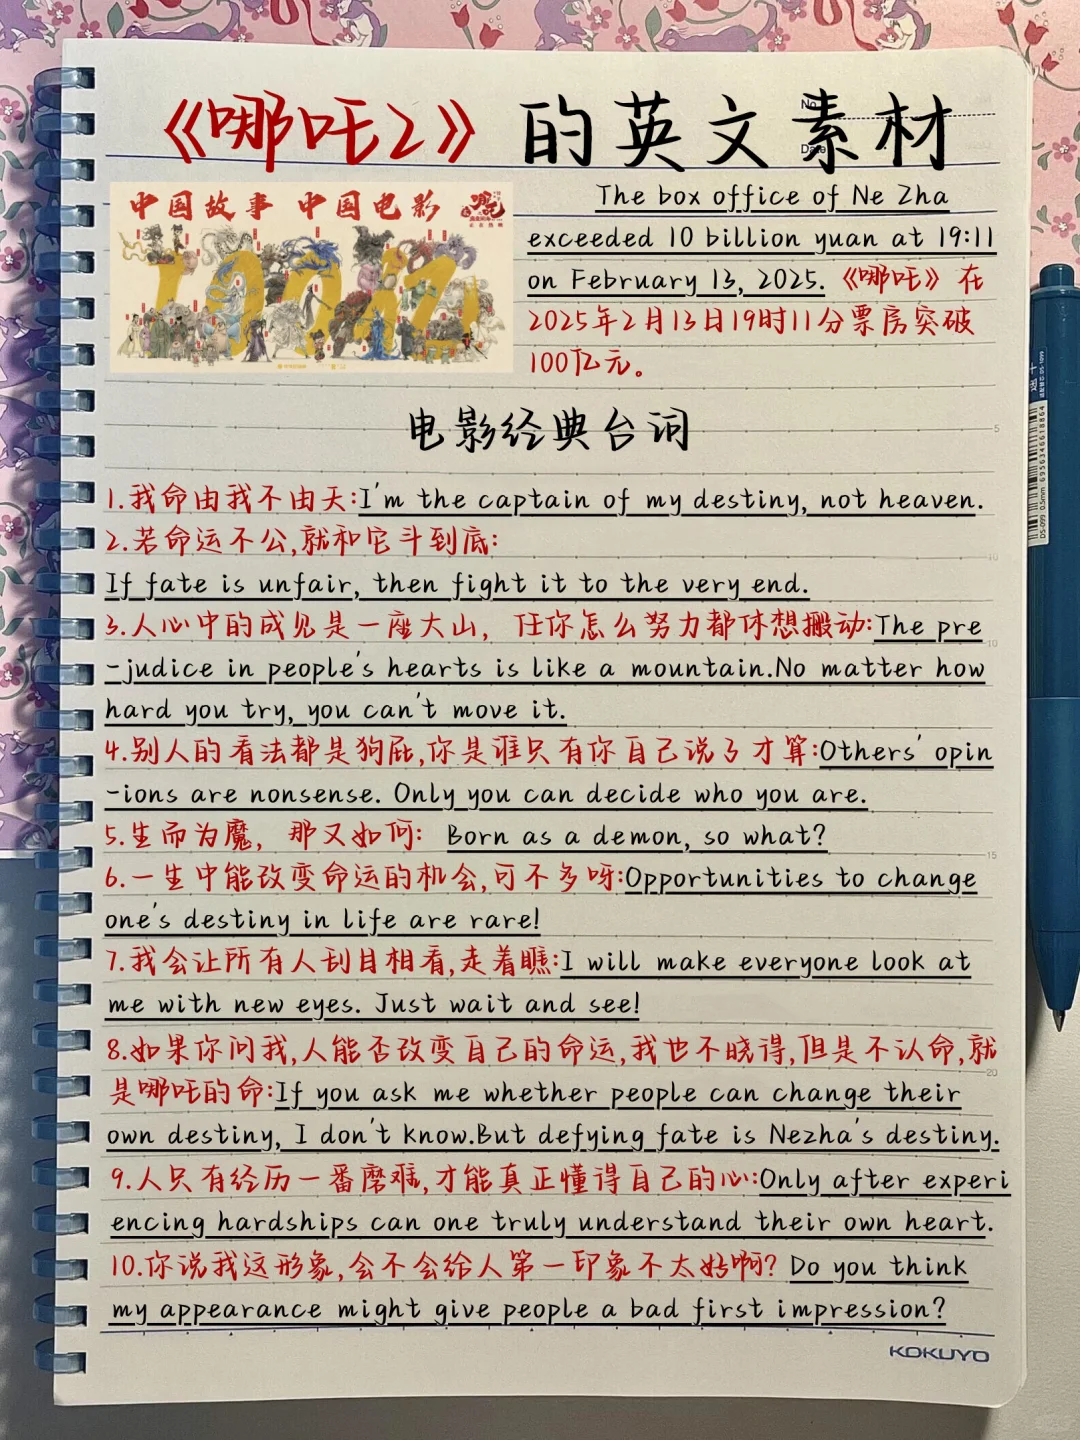 《哪吒2》的英文素材
No.
Date
中国故事 中国电影
The box office of Ne Zha
exceeded 10 billion yuan at 19:11
on February 13, 2025.《哪吒》在
2025年2月13日19时11分票房突破
100亿元。
电影经典台词
1.我命由我不由天:I'm the captain of my destiny, not heaven.
2.若命运不公,就和它斗到底:
If fate is unfair, then fight it to the very end.
3.人心中的成见是一座大山, 任你怎么努力都休想搬动:The pre
-judice in people's hearts is like a mountain.No matter how
hard you try, you can't move it.
4.别人的看法都是狗屁,你是谁只有你自己说了才算:Others' opin
-ions are nonsense. Only you can decide who you are.
5.生而为魔, 那又如何: Born as a demon, so what?
6.一生中能改变命运的机会,可不多呀:Opportunities to change
one's destiny in life are rare!
7.我会让所有人刮目相看,走着瞧:I will make everyone look at
me with new eyes. Just wait and see!
8.如果你问我,人能否改变自己的命运,我也不晓得,但是不认命,就
是哪吒的命:If you ask me whether people can change their
own destiny, I don't know.But defying fate is Nezha's destiny.
9.人只有经历一番磨难,才能真正懂得自己的心:Only after experi
encing hardships can one truly understand their own heart.
10.你说我这形象,会不会给人第一印象不太好啊? Do you think
my appearance might give people a bad first impression?
5
10
10
15
20
KOKUYO
DS-099 0.5mm 6956346618864